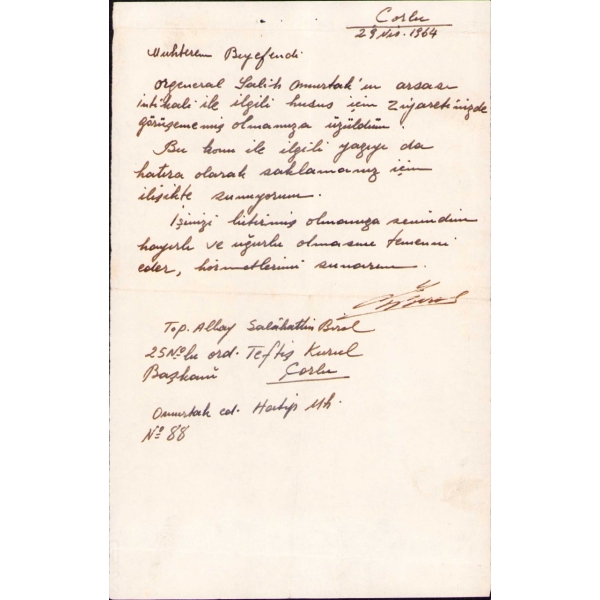 Çorlu
29 Nis. 1964
Muhterem Beyefendi
orgeneral Salih Omurtak'ın arsası
intikali ile ilgili husus için ziyaretinizde
görüşememiş olmamıza üzüldüm.
Bu konu ile ilgili yazıyı da
hatıra olarak saklamanız için
ilişikte sunuyorum.
İşinizi bitirmiş olmanıza sevindim
hayırlı ve uğurlu olmasını temenni
eder, hörmetlerimi sunarım.
Top. Albay Salâhattin Birol
25 Nº lu ord. Teftiş Kurul
Başkanı Çorlu
Omurtak cd. Hatip Mh.
Nº 88